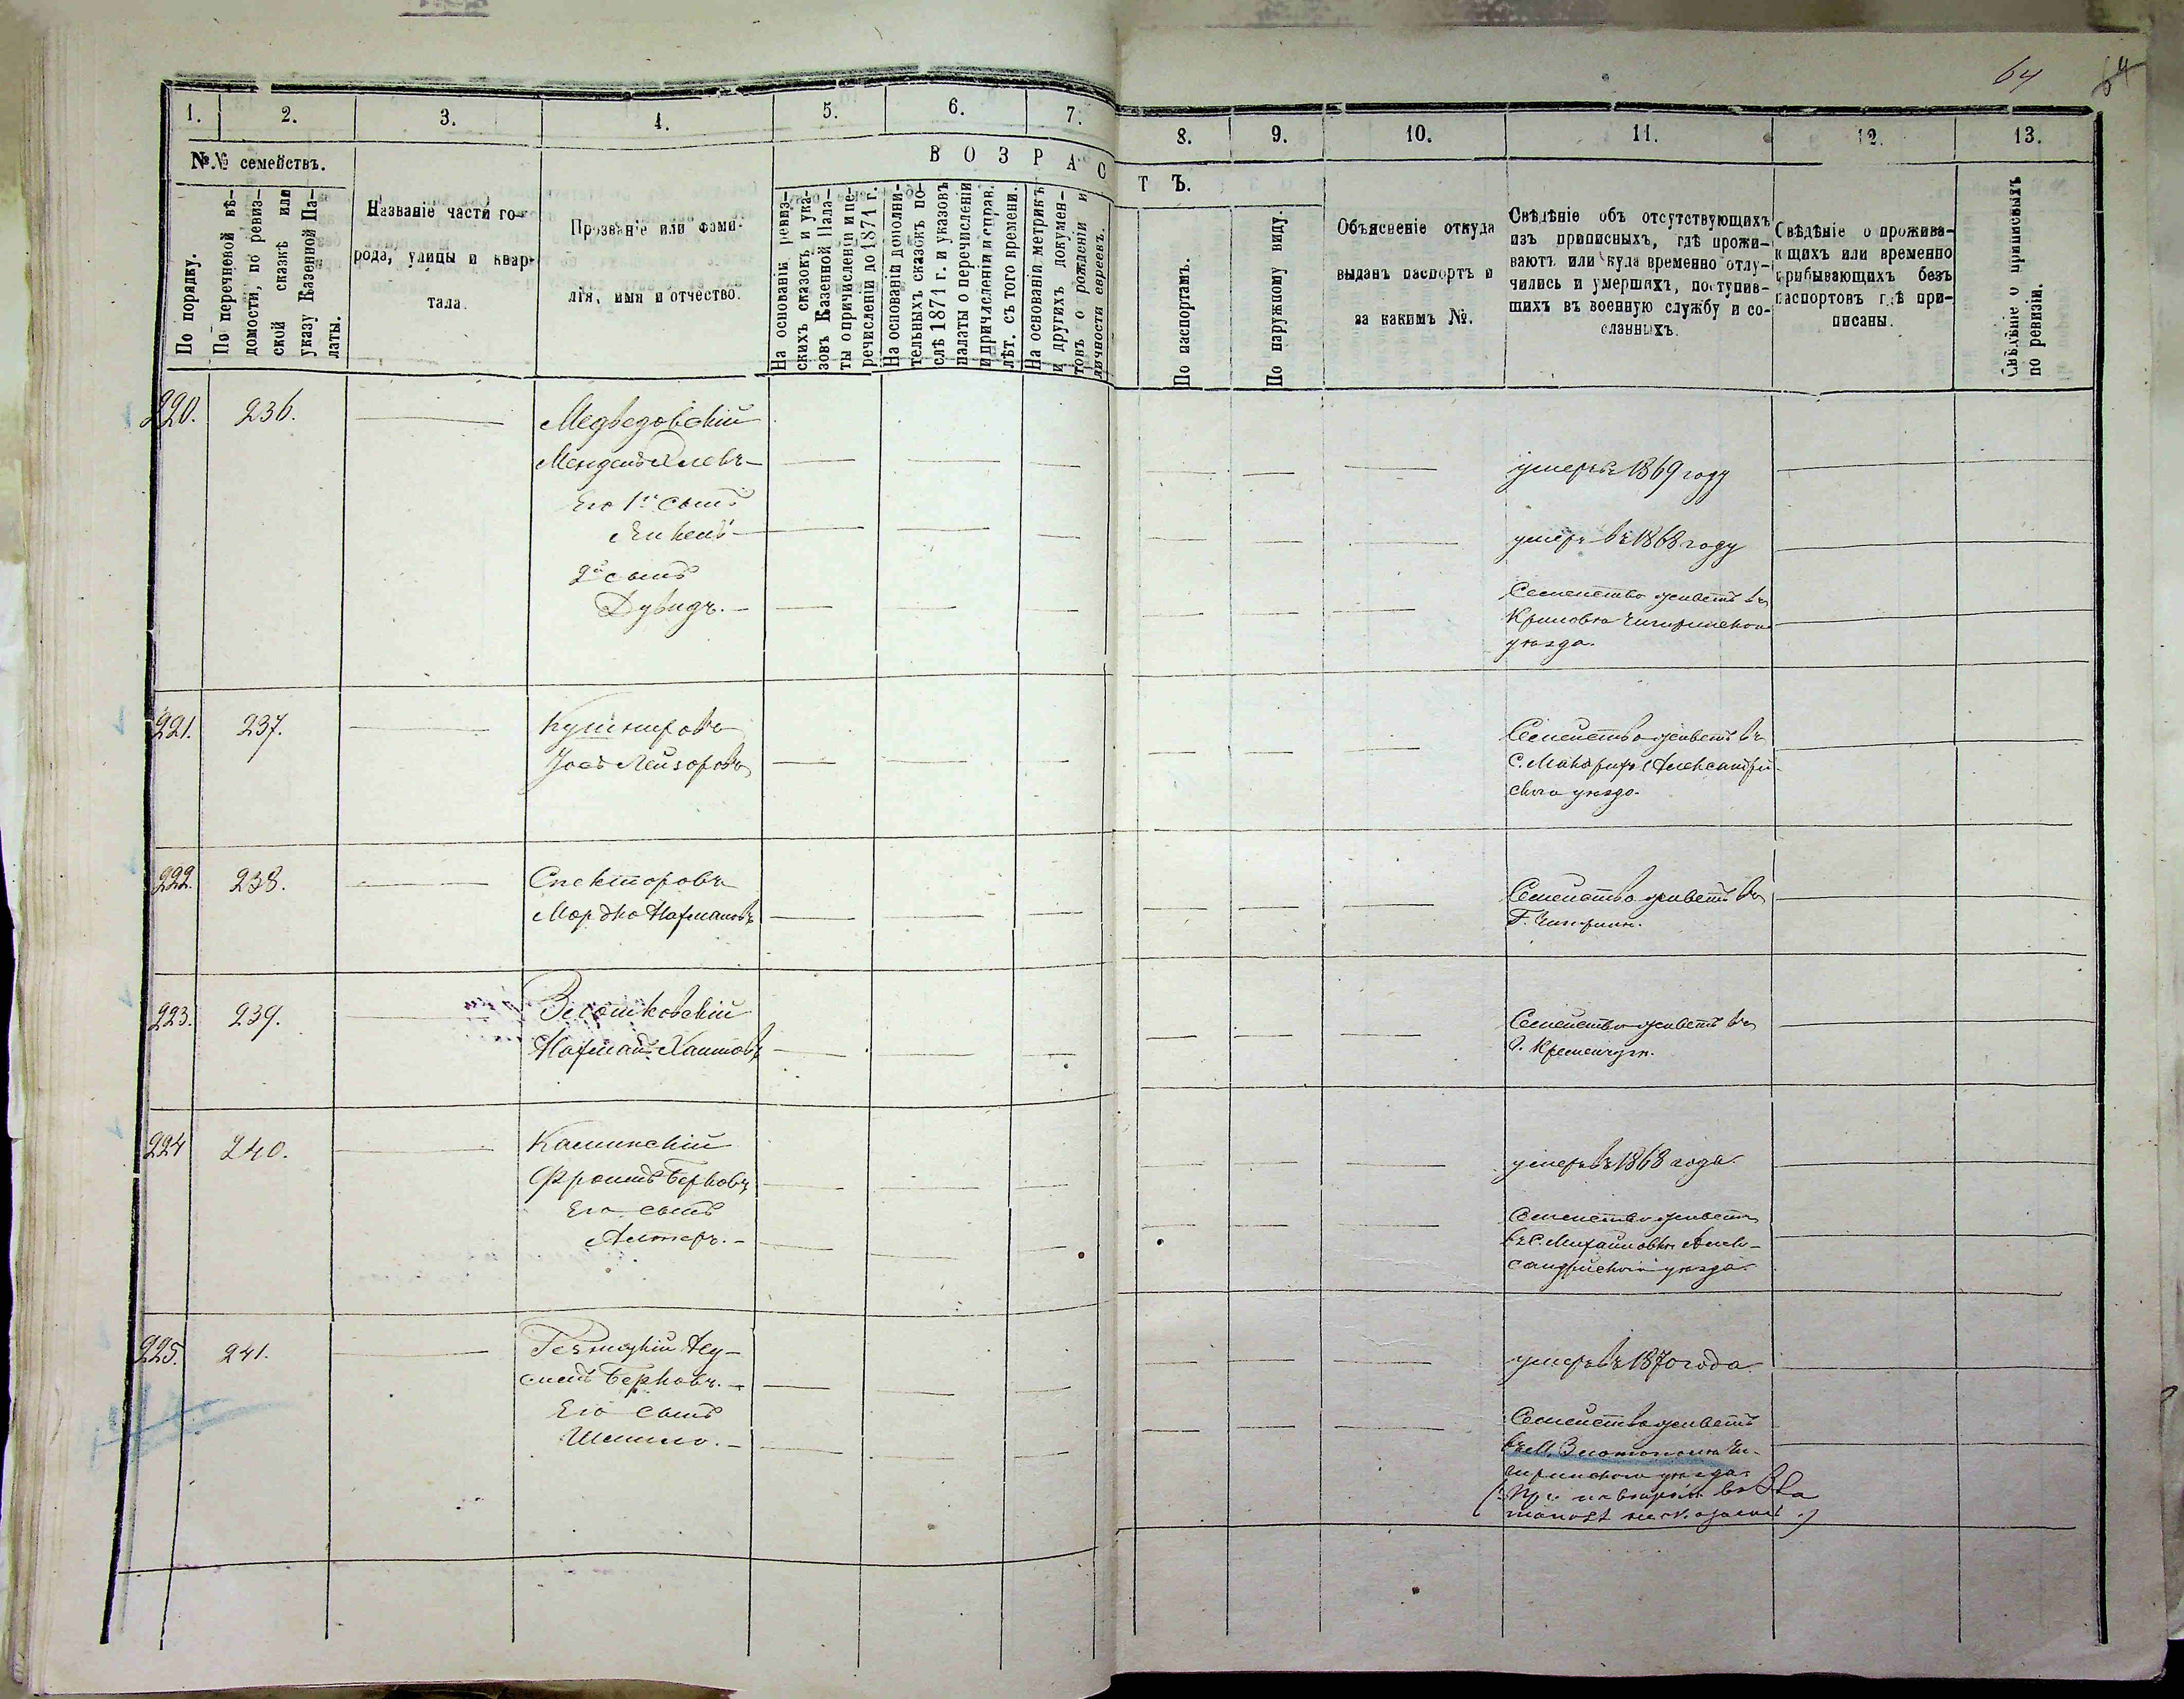 64
64
1.
2.
3.
4.
5.
6.
7.
8.
9.
10.
11.
12.
13.
№№ семействъ.
По порядку.
По перечневой вѣ-
домости, по ревиз-
ской сказкѣ или
указу Казенной Па-
латы.
Названіе части го-
рода, улицы и квар-
тала.
Прозваніе или фами-
лія, имя и отчество.
ВОЗРАС
ТЪ.
На основаніи ревиз-
скихъ сказокъ и ука-
зовъ Казенной Пала-
ты о причисленіи и пе-
речисленіи до 1871 г.
На основаніи дополни-
тельныхъ сказокъ по-
слѣ 1871 г. и указовъ
палаты о перечисленіи
и причисленіи и справ.
лѣт. съ того времени.
На основаніи метрикъ
и другихъ докумен-
товъ о рожденіи и
личности евреевъ.
По паспортамъ.
По наружному виду.
Объясненіе откуда
выданъ паспортъ и
за какимъ №.
Свѣдѣніе объ отсутствующихъ
изъ приписныхъ, гдѣ прожи-
ваютъ или куда временно отлу-
чились и умершихъ, поступив-
шихъ въ военную службу и со-
сланныхъ.
Свѣдѣніе о прожива-
ющихъ или временно
прибывающихъ безъ
паспортовъ гдѣ при-
писаны.
Свѣдѣніе о приписныхъ
по ревизіи.
220. 236.
Медведовскій
Мендель
умеръ въ 1869 году
Его 1й сынъ
Янкель
умеръ въ 1868 году
2й сынъ
Дувидъ.
Семейство живетъ въ
Крыловѣ Чигиринскаго
уѣзда.
221. 237.
Кушнировъ
Іось Лейзоровъ
Семейство живетъ въ
С. Макарихѣ Александрій-
скаго уѣзда.
222. 238.
Спекторовъ
Мордко Нахмановъ
Семейство живетъ въ
Г. Чигиринѣ.
223. 239.
Нахманъ Хаимовъ
Семейство живетъ въ
г. Кременчугѣ.
224 240.
Каминскій
Фроимъ Берковъ
умеръ въ 1868 года.
Его сынъ
Алтеръ.
Семейство живетъ
въ С. Михайловкѣ Алек-
сандрійскаго уѣзда.
225. 241.
Берковъ.
умеръ въ 1870 года
Его сынъ
Шмилю.
Семейство живетъ
въ М. Златополѣ Чи-
гиринскаго уѣзда.